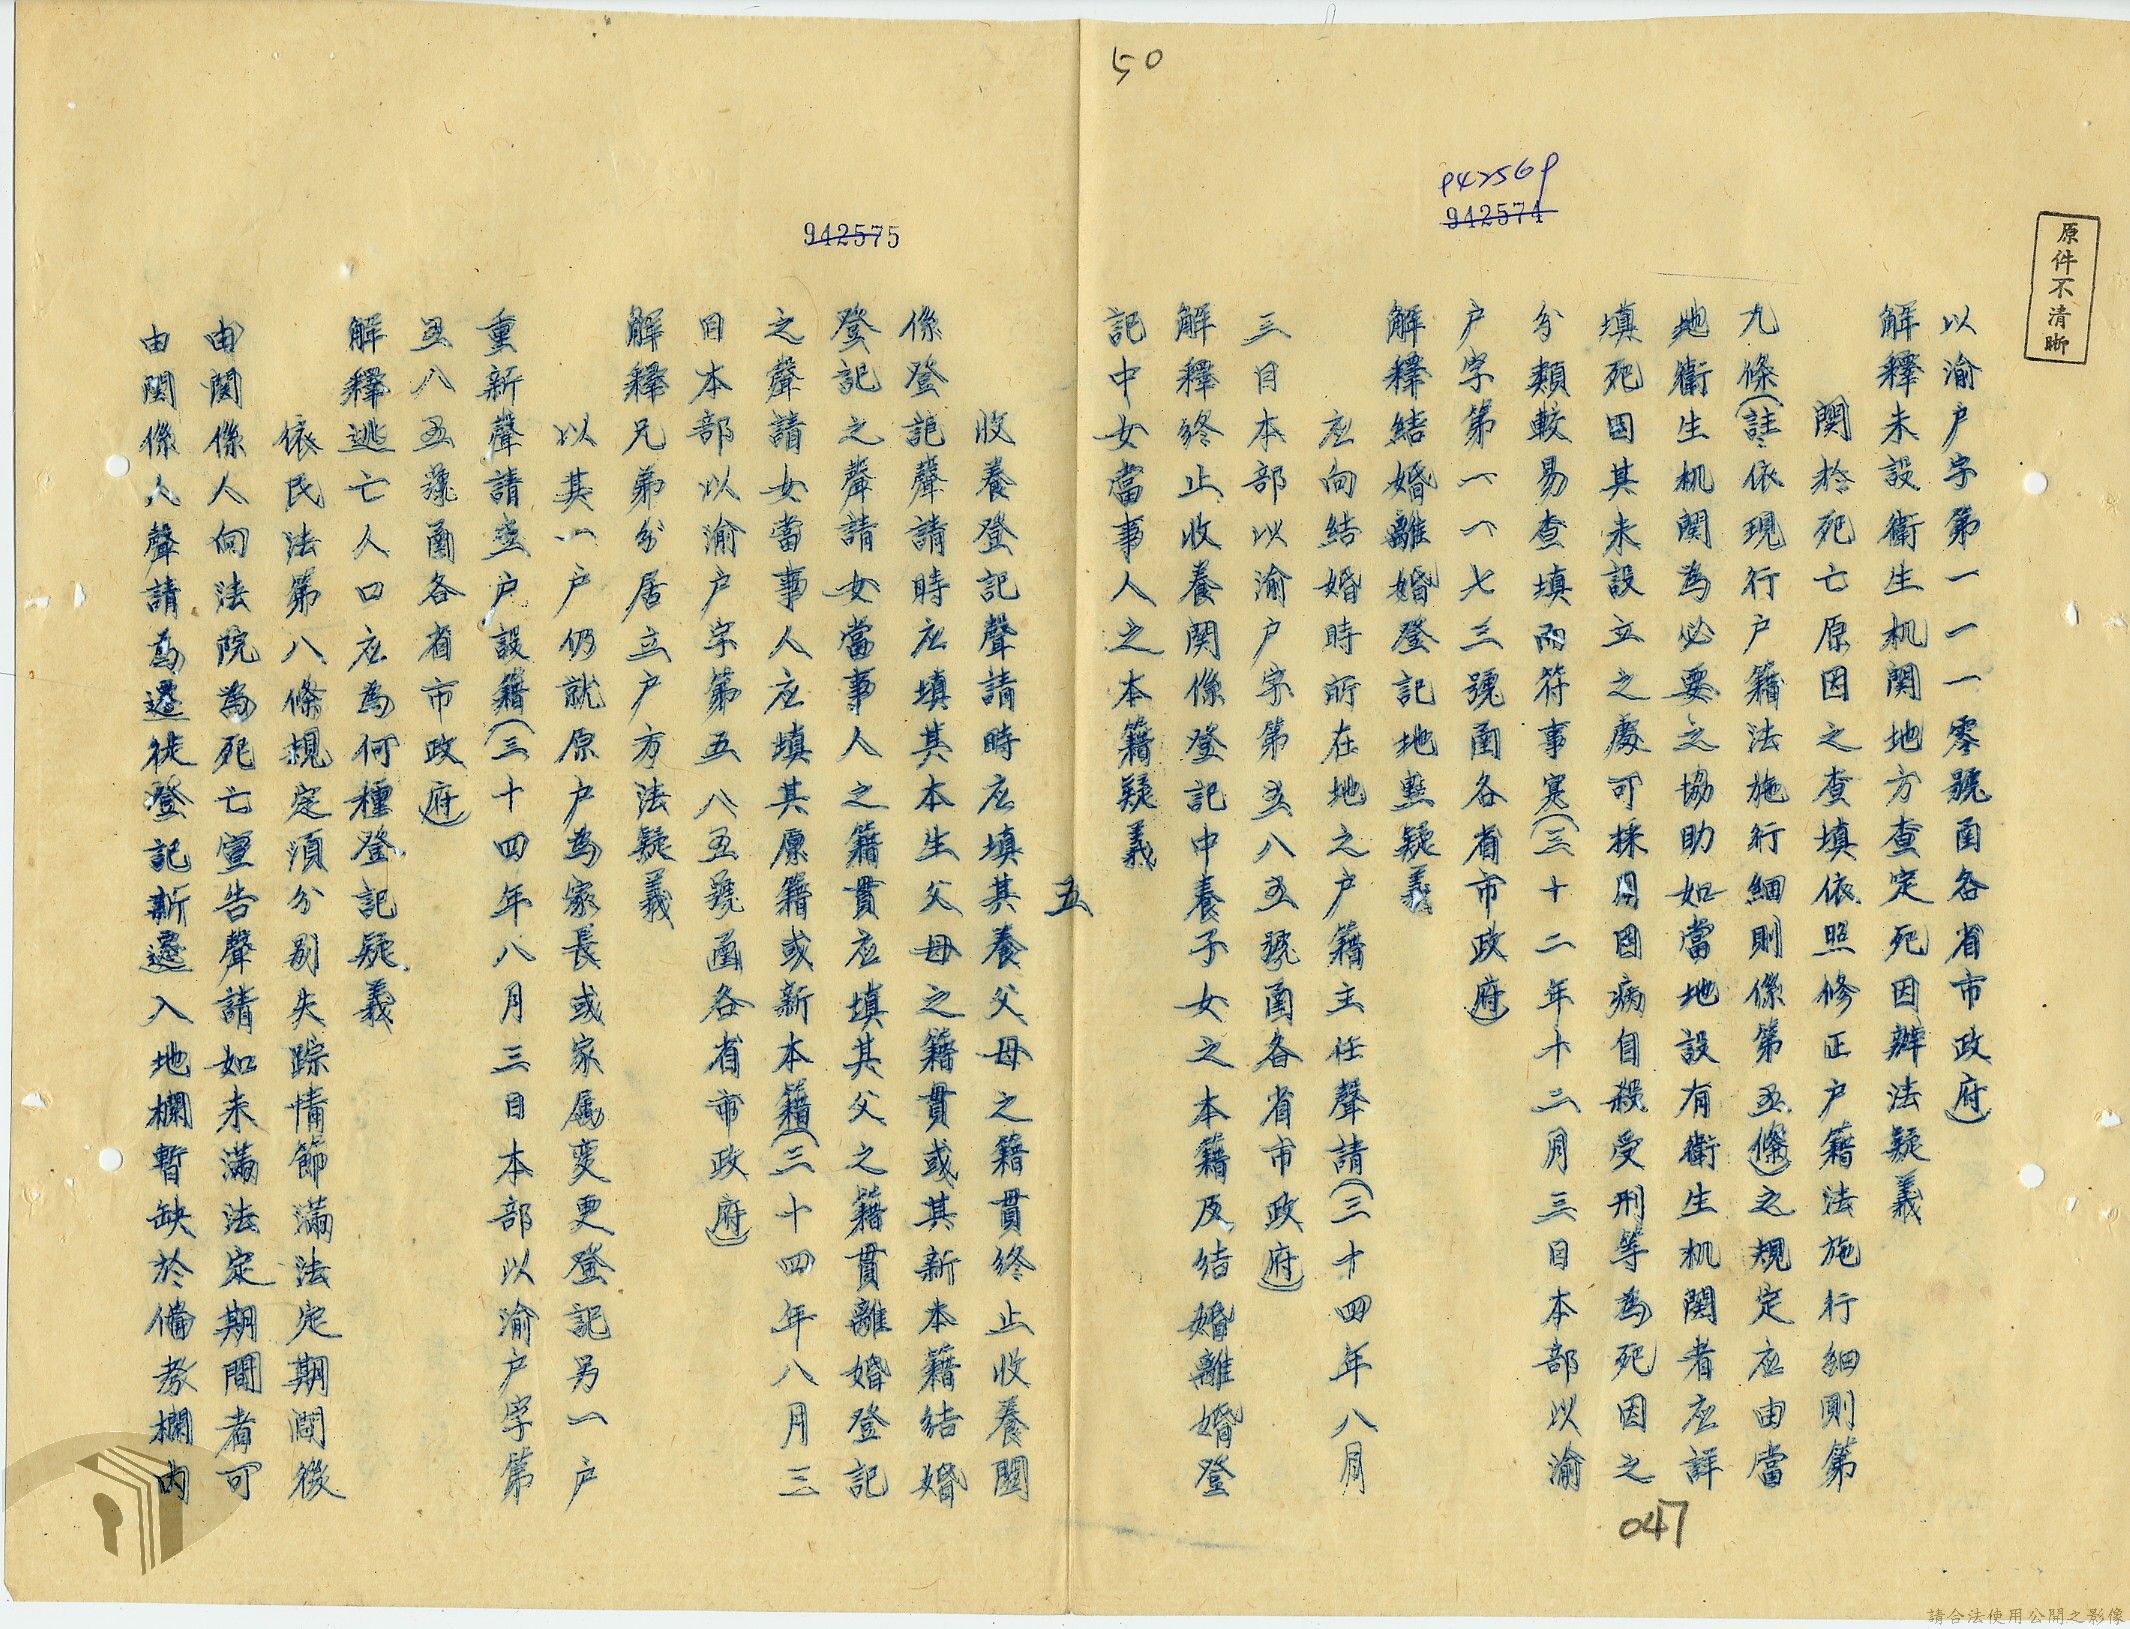 50
942569
942574
原件不清晰
以渝户字第一一一零號函各省市政府）
解釋未設衛生机関地方查定死因辦法疑義
関於死亡原因之查填依照修正户籍法施行細則第
九條（註依現行户籍法施行細則係第五條）之規定应由當
地衛生机関為必要之協助如當地設有衛生机関者应詳
填死因其未設立之處可採用因病自殺受刑等為死因之
分類較易查填而符事实（三十二年十二月三日本部以渝
户字第一一七三號函各省市政府）
解釋結婚離婚登記地點疑義
应向結婚時所在地之户籍主任聲請（三十四年八月
三日本部以渝户字第五八五號函各省市政府）
解釋終止收養関係登記中養子女之本籍及結婚離婚登
記中女當事人之本籍疑義
047
五
942575
收養登記聲請時应填其養父母之籍貫終止收養関
係登記聲請時应填其本生父母之籍貫或其新本籍結婚
登記之聲請女當事人之籍貫应填其父之籍貫離婚登記
之聲請女當事人应填其原籍或新本籍（三十四年八月三
日本部以渝户字第五八五號函各省市政府）
解釋兄弟分居立户方法疑義
以其一户仍就原户為家長或家属变更登記另一户
重新聲請立户設籍（三十四年八月三日本部以渝户字第
五八五號函各省市政府）
解釋逃亡人口应為何種登記疑義
依民法第八條規定須分别失踪情節滿法定期間後
由関係人向法院為死亡宣告聲請如未滿法定期間者可
由関係人聲請為遷徙登記新遷入地欄暫缺於備考欄内
請合法使用公開之影像